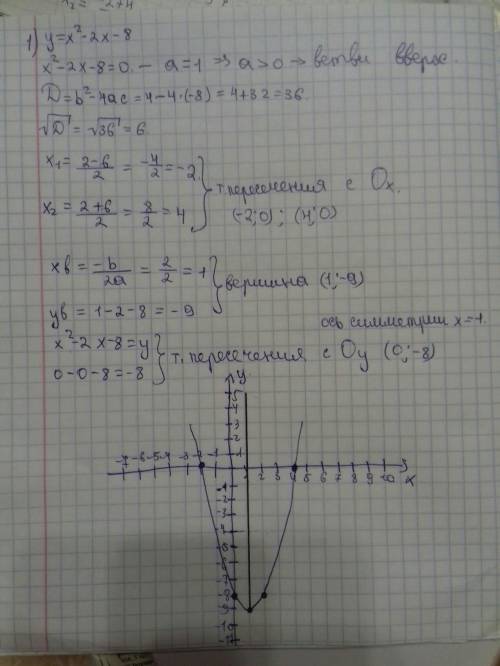 1) y=x²-2x-8
x²-2x-8=0. — a=1 ⇒ a>0 → ветви вверх.
D=b²-4ac=4-4·(-8)=4+32=36.
√D=√36=6
x₁=(2-6)/2=-4/2=-2
x₂=(2+6)/2=8/2=4
т. пересечения с Ox.
(-2;0); (4;0)
xв=-b/2a=2/2=1
yв=1-2-8=-9
вершина (1;-9)
ось симметрии x=1.
x²-2x-8=y
0-0-8=-8
т. пересечения с Oy (0;-8)
y
5
4
3
2
1
-7 -6 -5 -4 -3 -2 -1 1 2 3 4 5 6 7 8 9 10 x
-1
-2
-3
-4
-5
-6
-7
-8
-9
-10